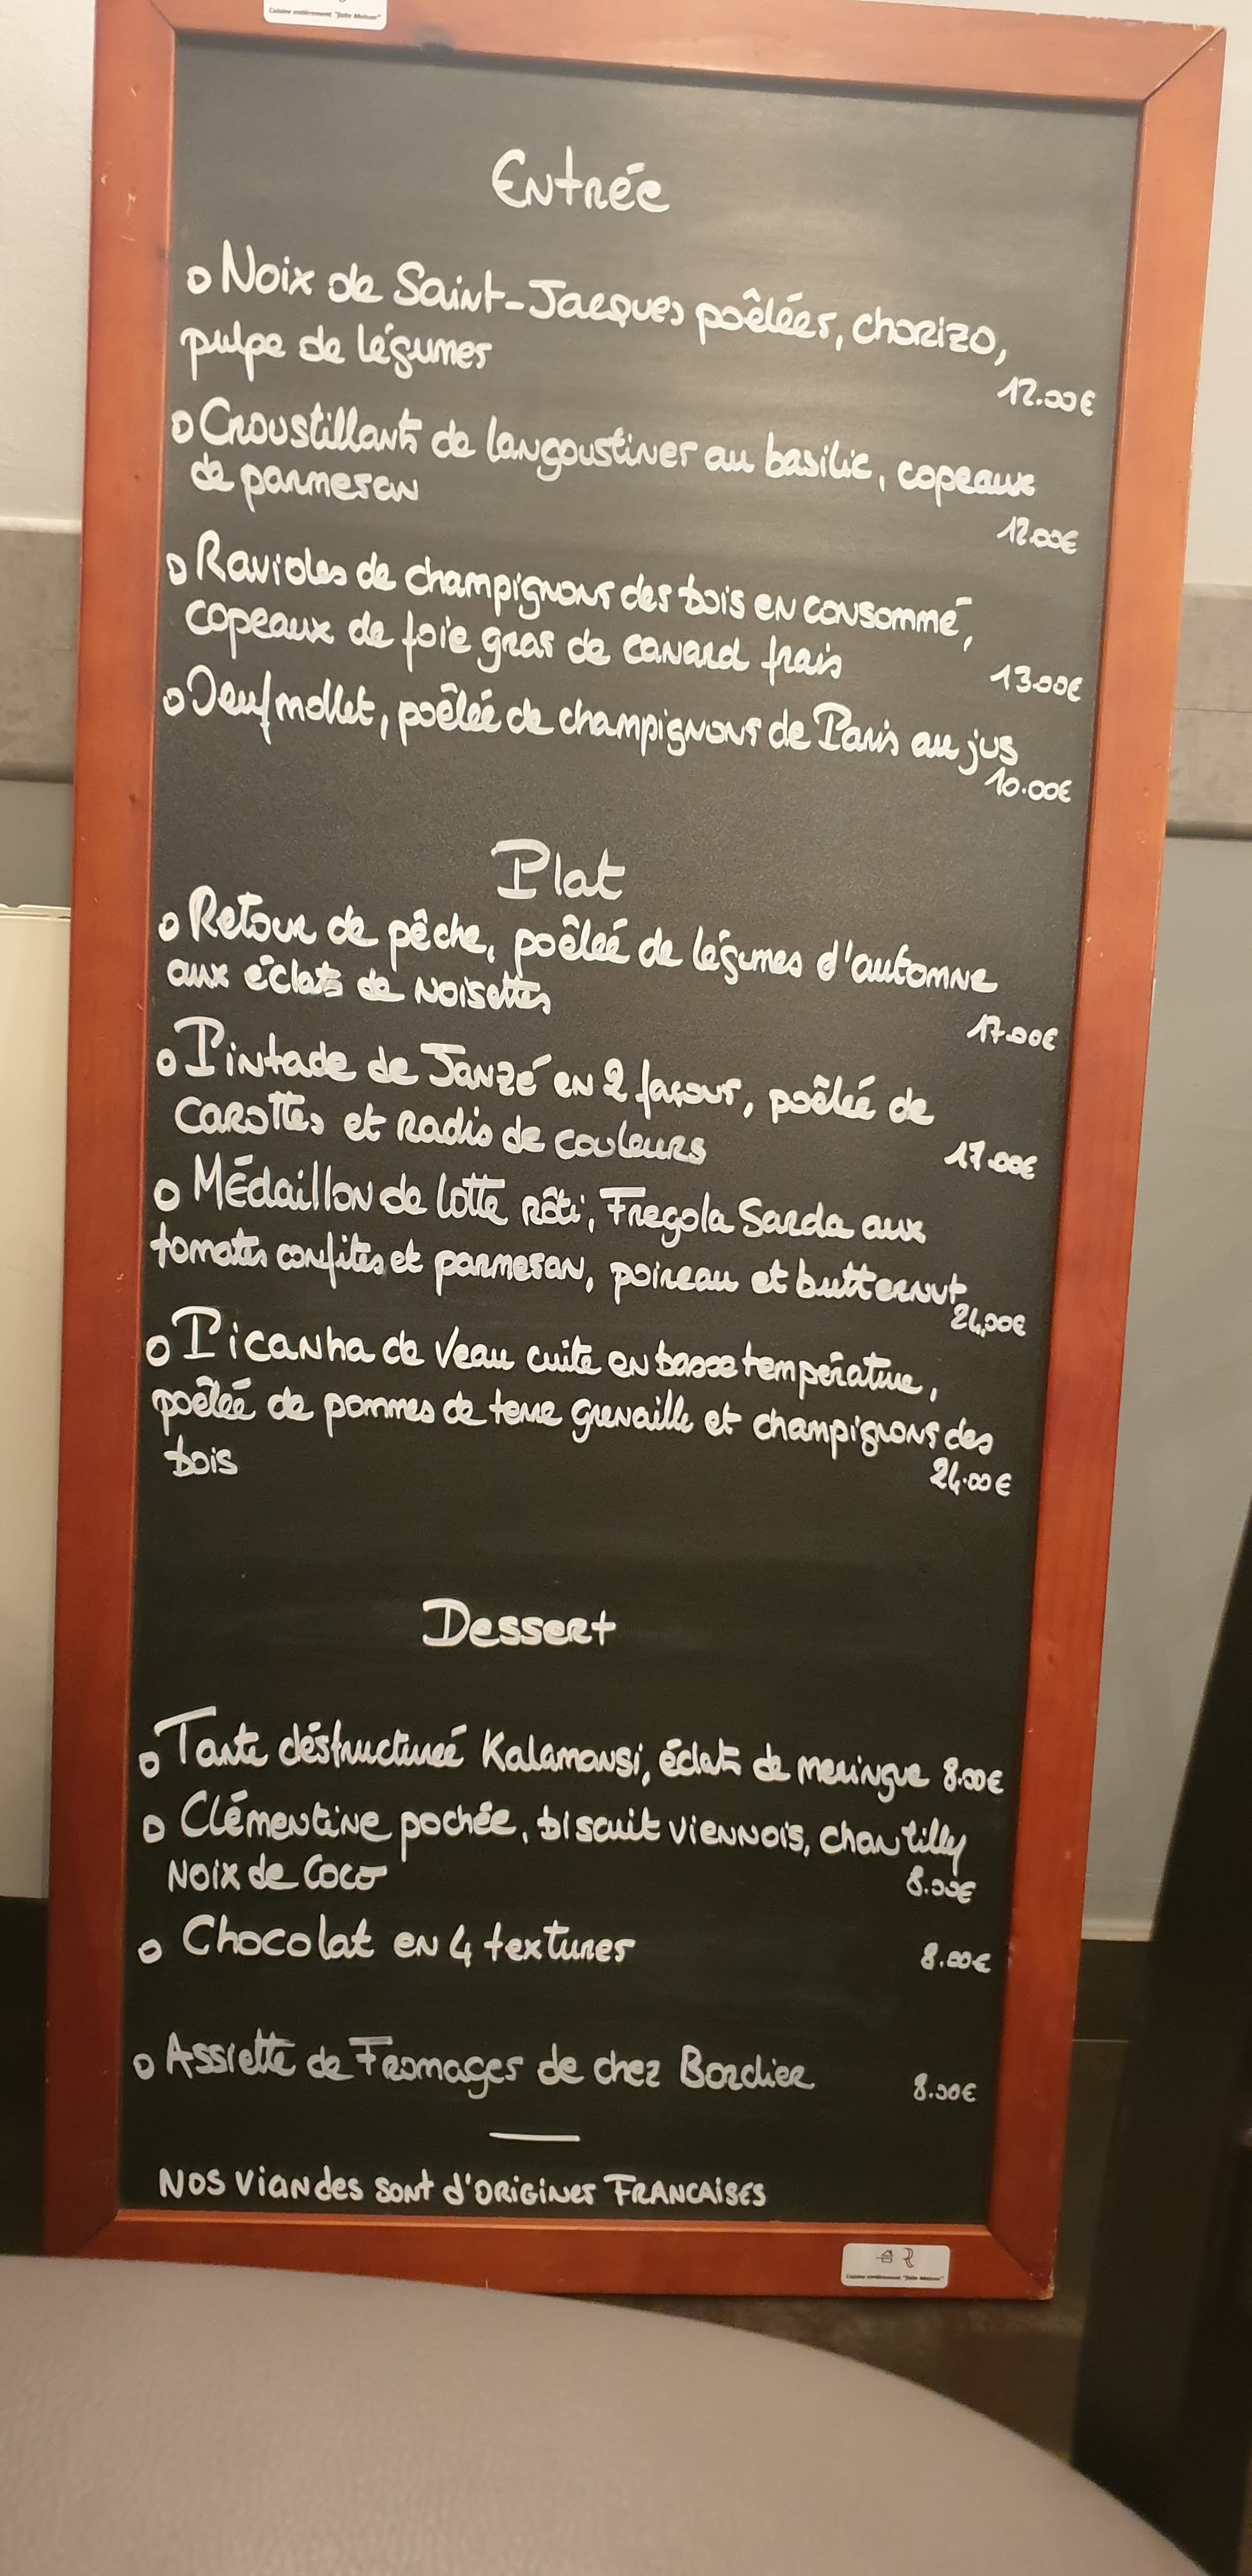 Cuisine entièrement "faite Maison"
Entrée
o Noix de Saint-Jacques poêlées, chorizo,
pulpe de légumes
12.00€
o Croustillants de langoustines au basilic, copeaux
de parmesan
12.00€
o Ravioles de champignons des bois en consommé,
copeaux de foie gras de canard frais
13.00€
o Oeuf mollet, poêlée de champignons de Paris au jus
10.00€
Plat
o Retour de pêche, poêleé de légumes d'automne
aux éclats de noisettes
17.00€
o Pintade de Janzé en 2 façons, poêleé de
carottes et radis de couleurs
17.00€
o Médaillon de lotte rôti, Fregola Sarda aux
tomates confites et parmesan, poireau et butternut
24,00€
o Picanha de veau cuite en basse température,
poêleé de pommes de terre grenaille et champignons des
bois
24.00€
Dessert
o Tarte déstructureé Kalamansi, éclats de meringue 8.00€
o Clémentine pochée, biscuit viennois, chantilly
noix de coco
8.00€
o Chocolat en 4 textures 8.00€
o Assiette de Fromages de chez Bordier 8.00€
NOS Viandes sont d'ORIGINES FRANCAISES
Cuisine entièrement "faite Maison"